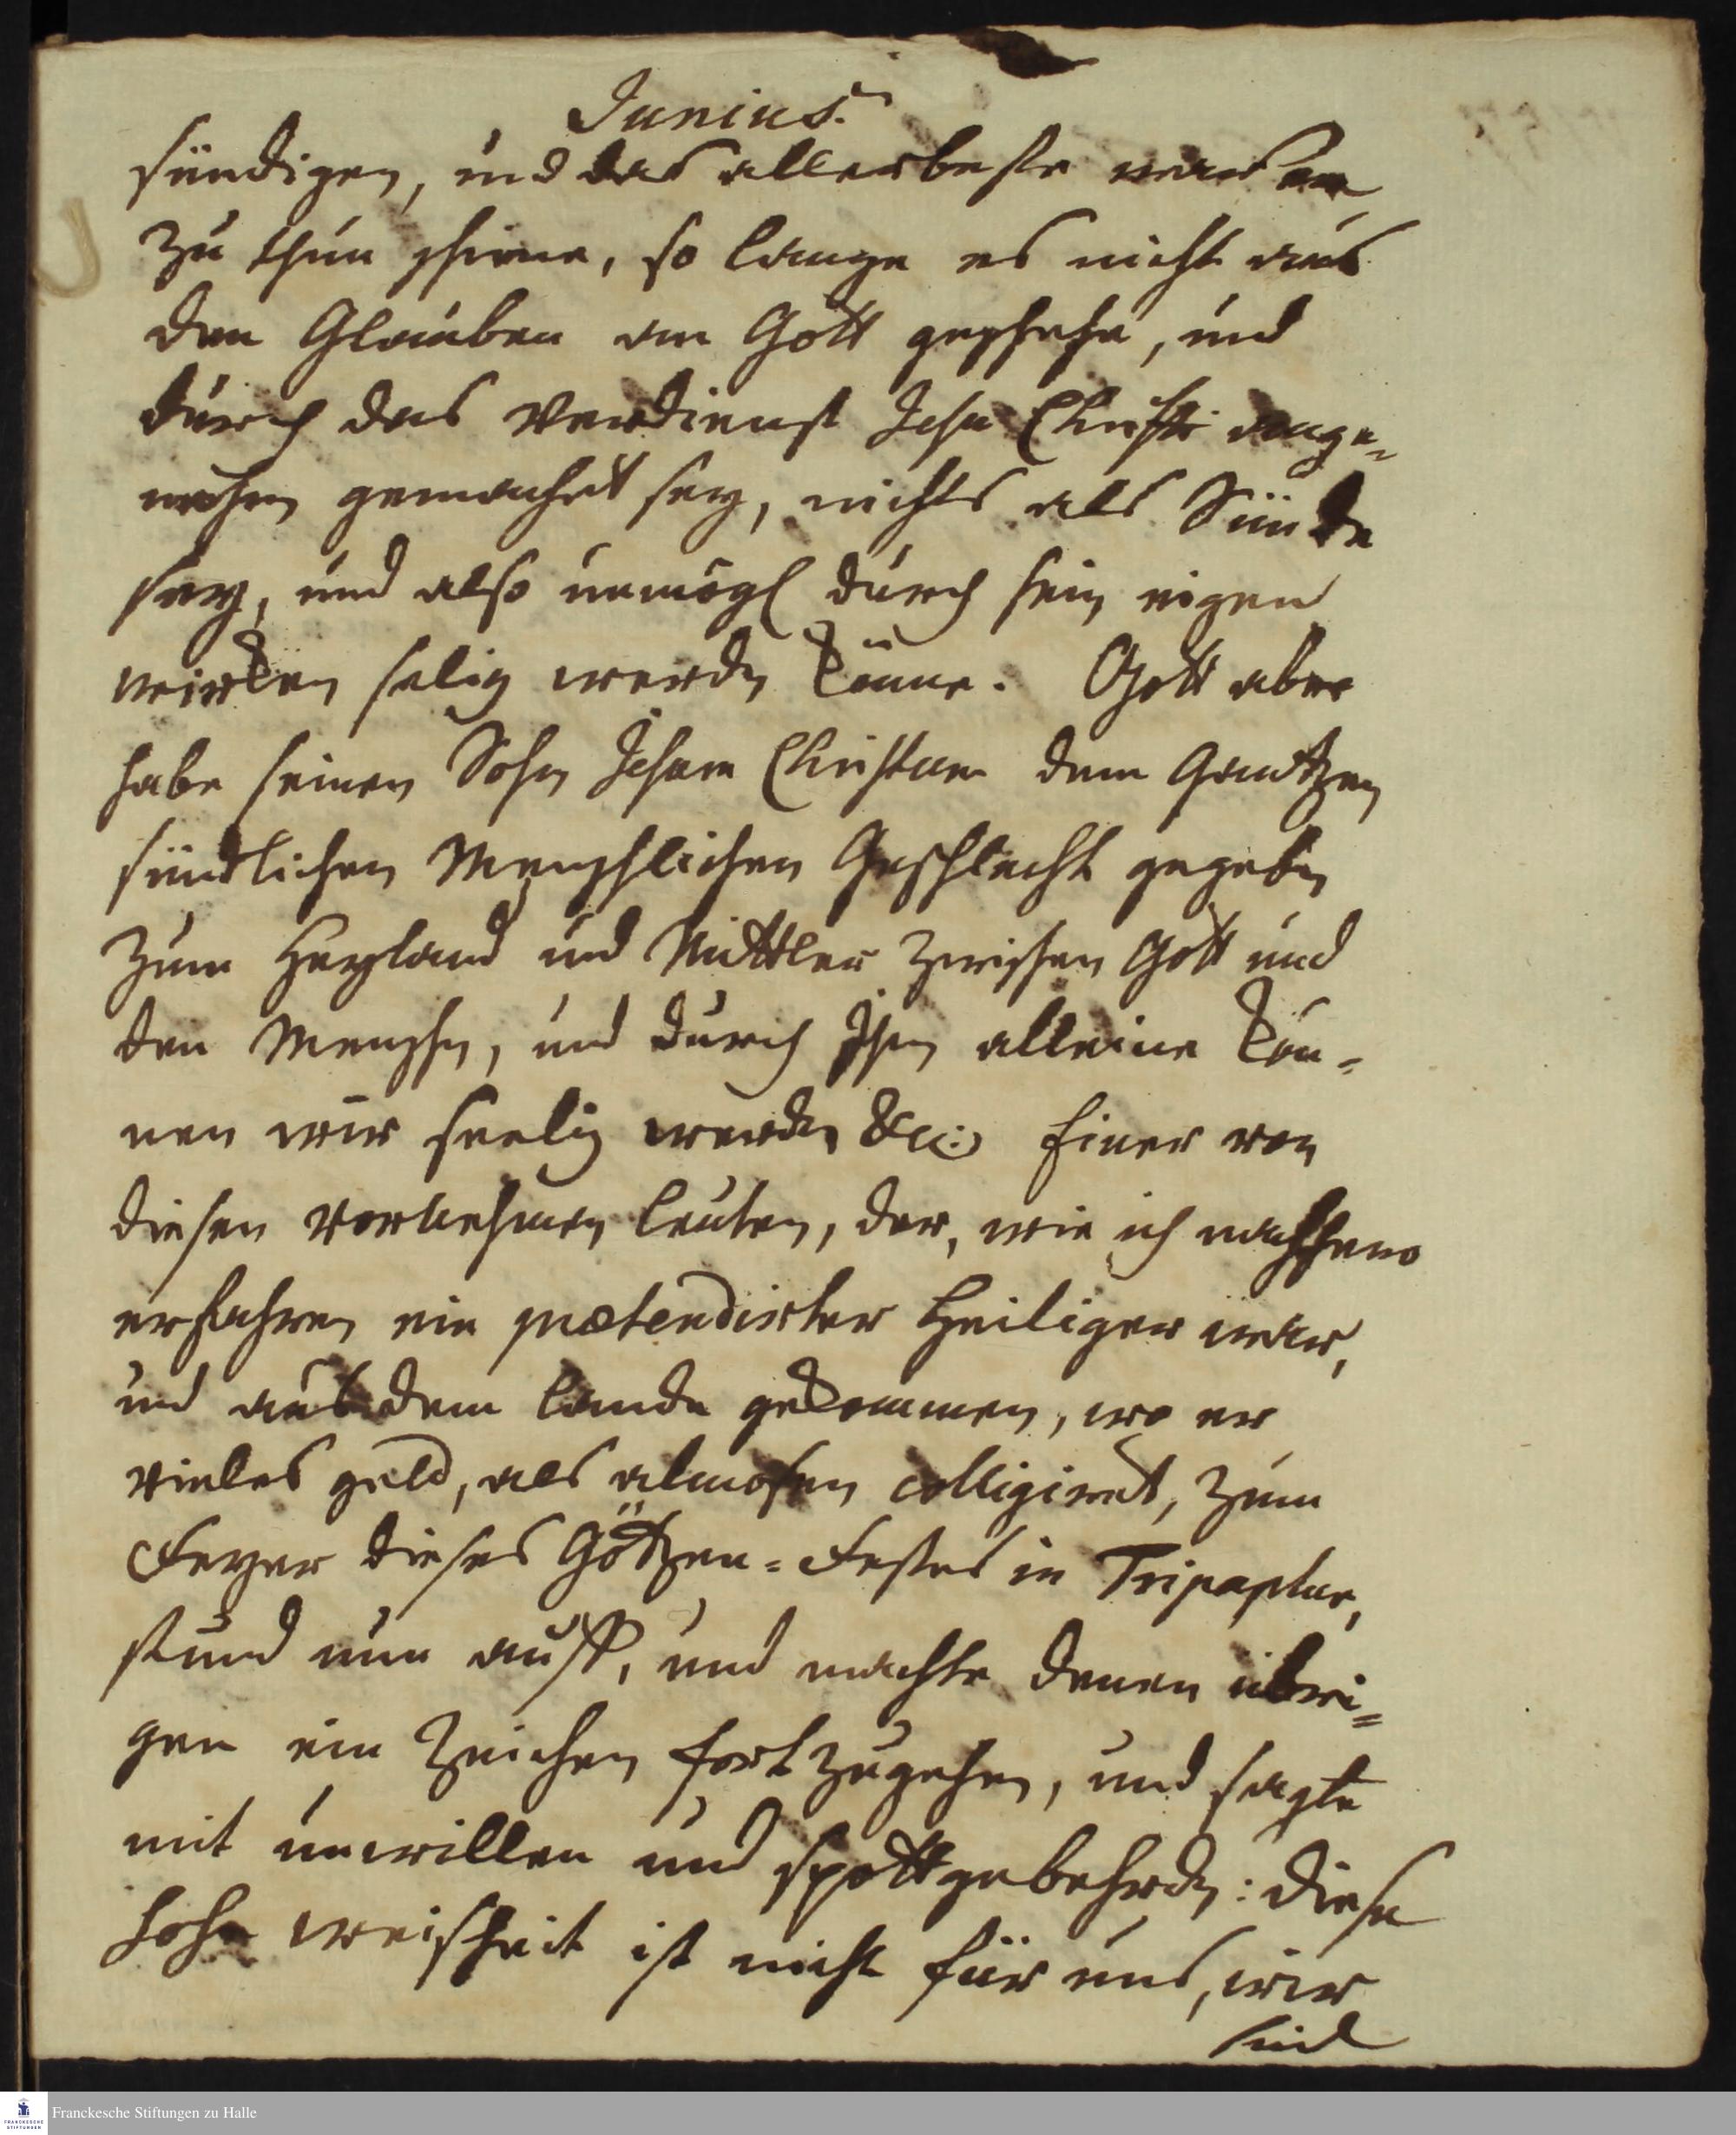 Junius.
sündigen, und das allerbeste was er
zu thun schiene, so lange es nicht aus
dem Glauben an Gott geschehe, und
durch das Verdienst Jesu Christi ange-
nehm gemachet sey, nichts als Sünde
sey, und also unmögl durch sein eigen
wirken selig werden könne. Gott aber
habe seinen Sohn Jesum Christum dem Gantzen
sündlichen Menschlichen Geschlecht gegeben
zum Heyland und Mittler zwischen Gott und
den Menschen, und durch Ihn alleine kön-
nen wir seelig werden &c: Einer von
diesen vornehmen leuten, der, wie ich nachhero
erfahren ein prætendirter Heiliger war,
und aus dem lande gekommen, wo er
vieles geld, als almosen colligiret, zum
Feyer dieses Götzen-Festes in Tripaplur,
stund nun auff, und machte denen übri-
gen ein Zeichen fortzugehen, und sagte
mit unwillen und spottgebehrden: diese
hohe weisheit ist nicht für uns, wir
sind
Franckesche Stiftungen zu Halle